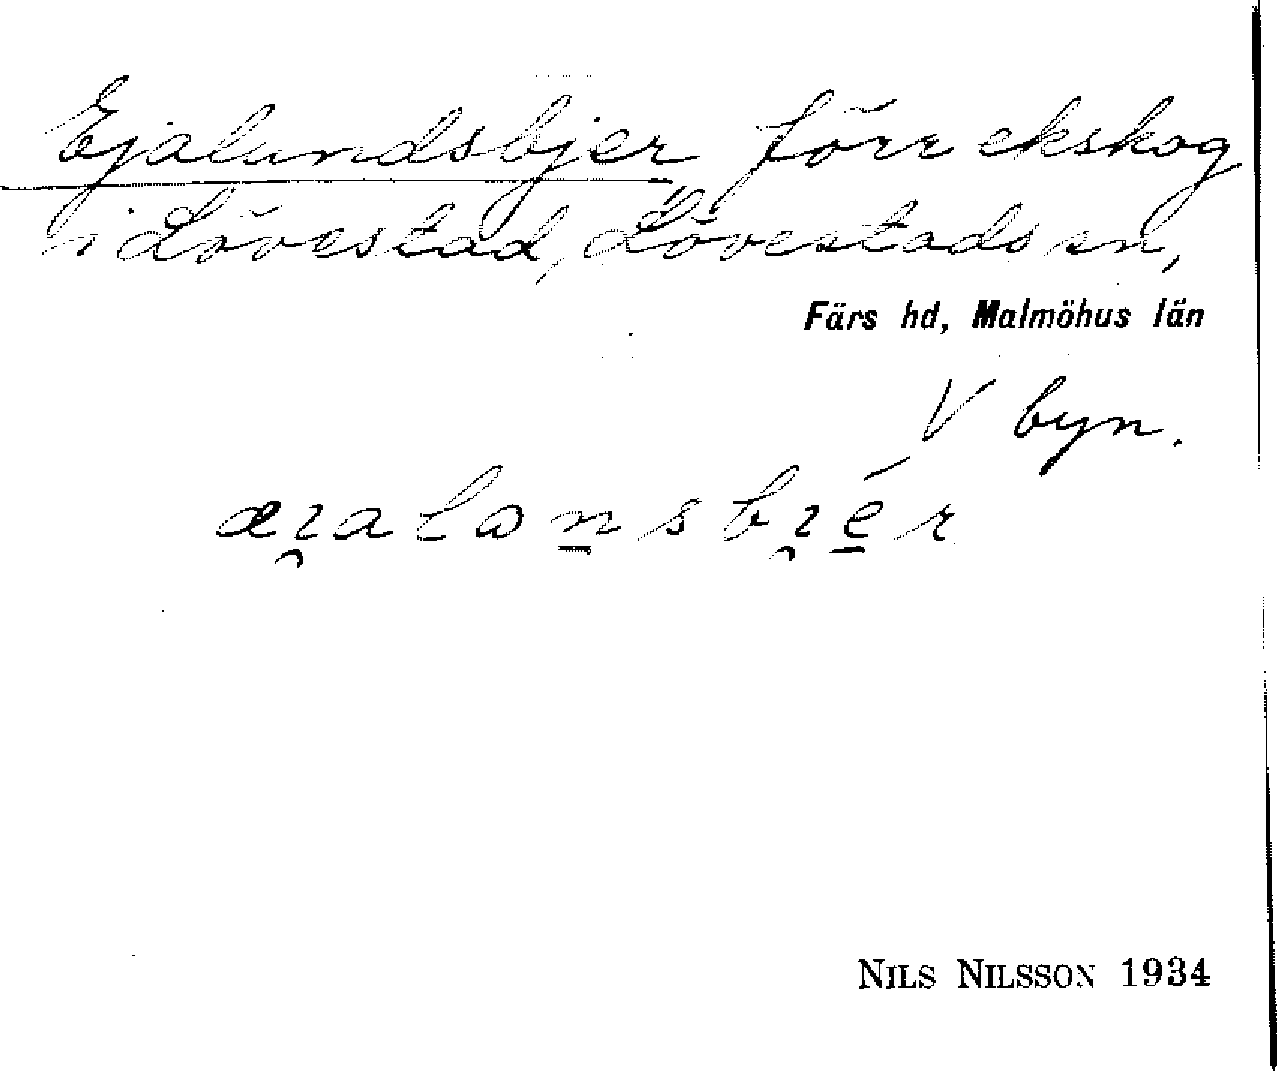 Ejalundsbjer förr ekskog
i Lövestad, Lövestads sn,
Färs hd, Malmöhus län
V byn.
æı̯alɷn̲sbı̯é̲r
NILS NILSSON 1934